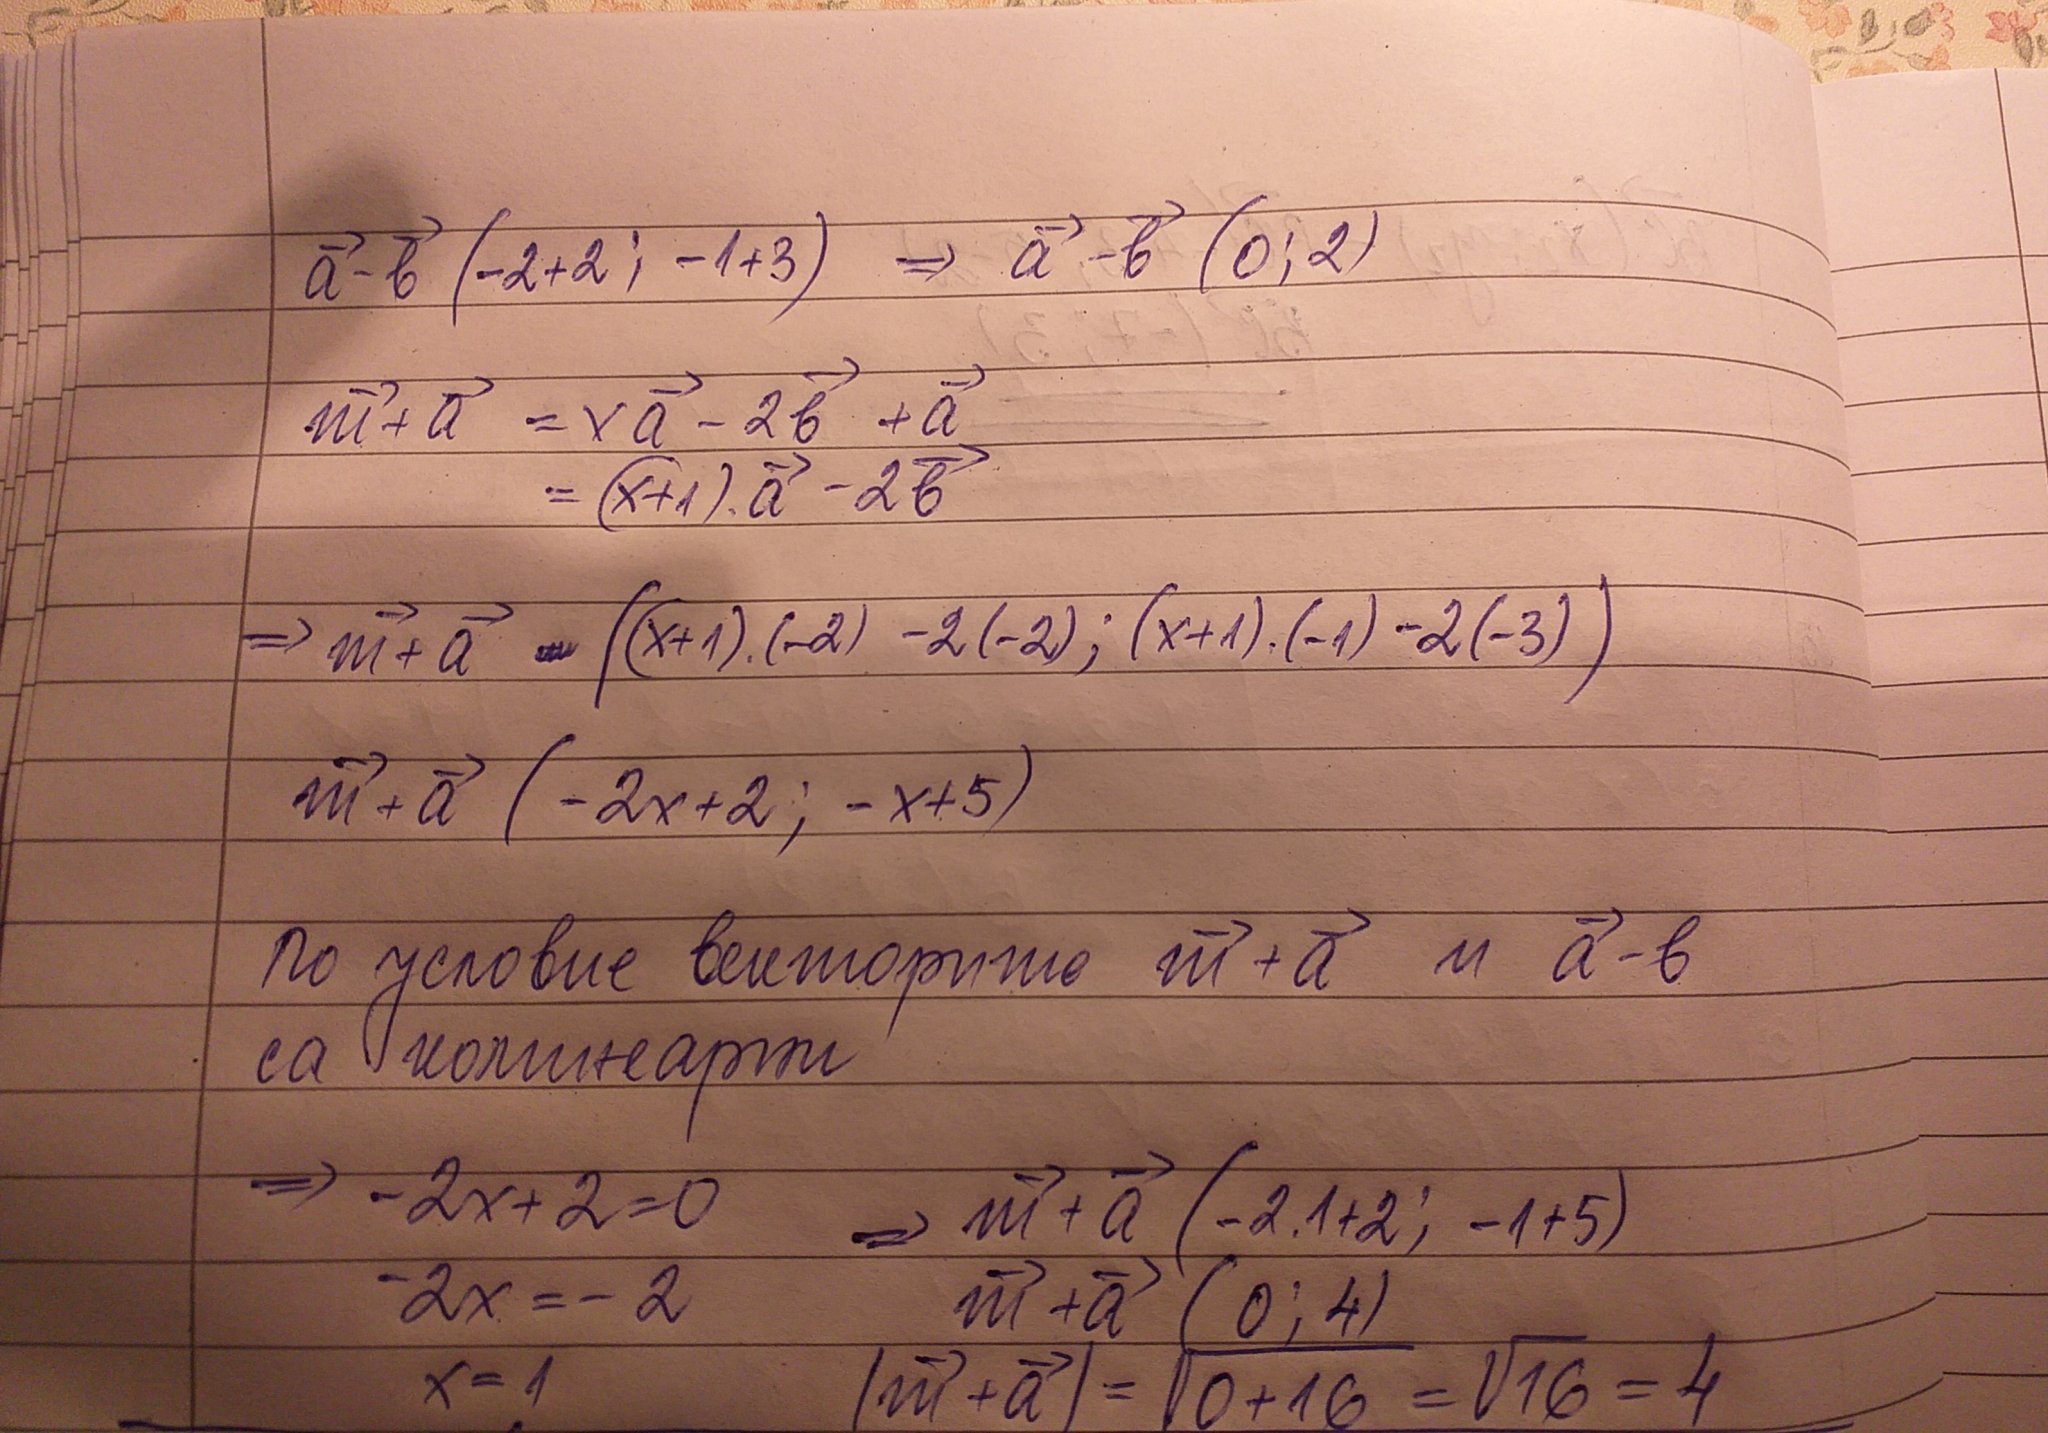 a⃗ - b⃗ (-2+2 ; -1+3) ⇒ a⃗ - b⃗ (0 ; 2)
m⃗ + a⃗ = x a⃗ - 2b⃗ + a⃗
= (x+1) . a⃗ - 2b⃗
⇒ m⃗ + a⃗ ((x+1).(-2) -2(-2) ; (x+1).(-1) -2(-3))
m⃗ + a⃗ (-2x+2 ; -x+5)
По условие векторите m⃗ + a⃗ и a⃗ - b
са колинеарни
⇒ -2x+2=0 ⇒ m⃗ + a⃗ (-2.1+2 ; -1+5)
-2x = -2 m⃗ + a⃗ (0 ; 4)
x = 1 |m⃗ + a⃗| = √(0+16) = √16 = 4